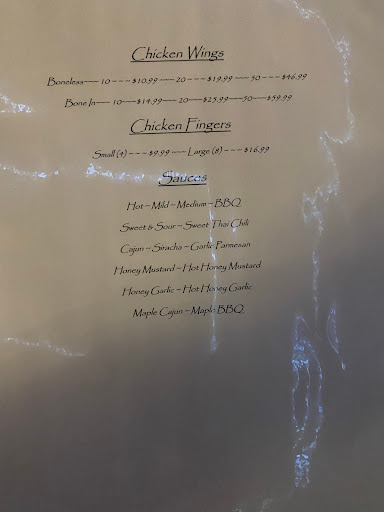 Chicken Wings
Boneless---- 10 - - - $10.99 ---- 20 - - - $19.99 ---- 50 - - - $46.99
Bone In--- 10----$14.99--- 20----$25.99----50----$59.99
Chicken Fingers
Small (4) - - - $9.99 ---- Large (8) - - - $16.99
Sauces
Hot ~ Mild ~ Medium ~ BBQ
Sweet & Sour ~ Sweet Thai Chili
Cajun ~ Siracha ~ Garlic Parmesan
Honey Mustard ~ Hot Honey Mustard
Honey Garlic ~ Hot Honey Garlic
Maple Cajun ~ Maple BBQ